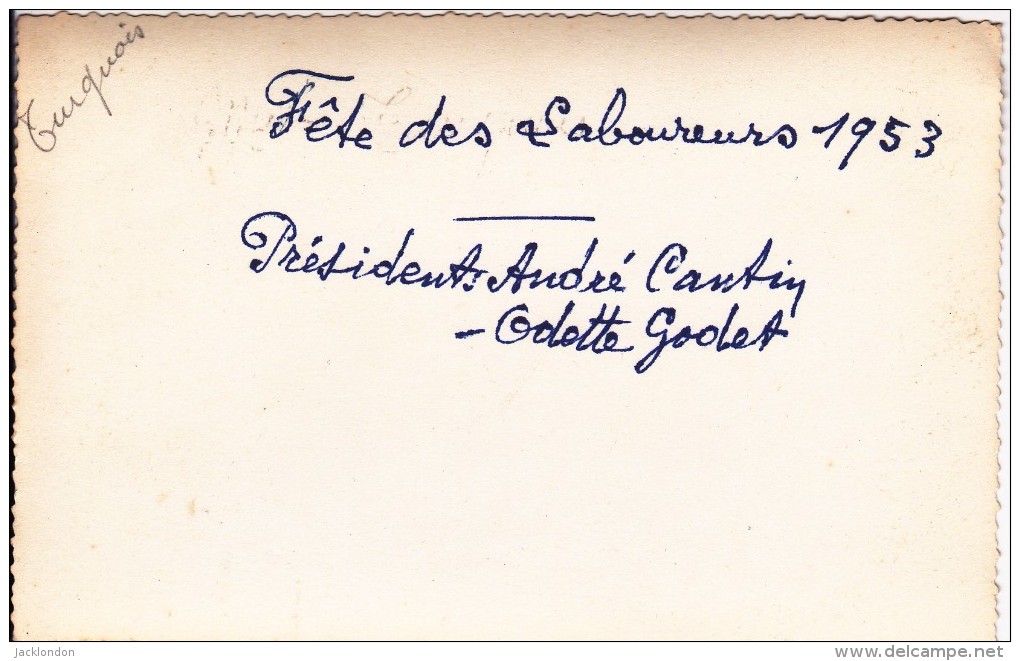 Turquois
Fête des Laboureurs 1953
Présidents André Cantin
- Odette Godet
jacklondon
www.delcampe.net